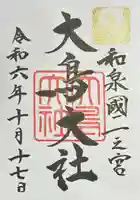 和泉國一之宮
大鳥大社
令和六年十月十七日